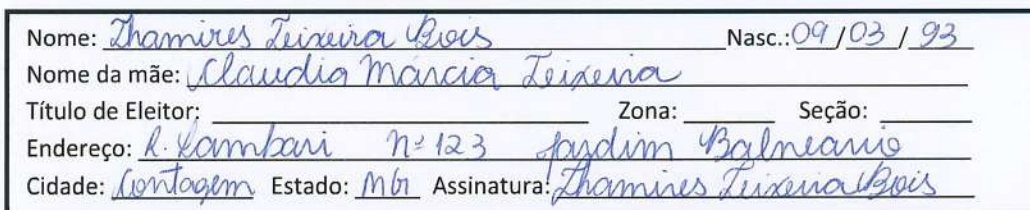 Nome: Thamires Teixeira Bois Nasc.: 09/03/93
Nome da mãe: Claudia Márcia Teixeira
Título de Eleitor: Zona: Seção:
Endereço: R. Lambari nº 123 Jardim Balneario
Cidade: Contagem Estado: MG Assinatura: Thamires Teixeira Bois